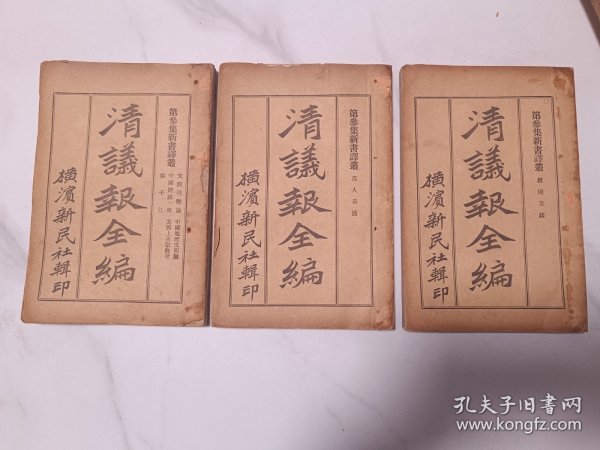 第參集新書譯叢
支那現勢論
清議報全編
橫濱新民社輯印
第參集新書譯叢
佳人奇遇
清議報全編
橫濱新民社輯印
第參集新書譯叢
經國美談
清議報全編
橫濱新民社輯印
孔夫子旧书网
www.kongfz.com